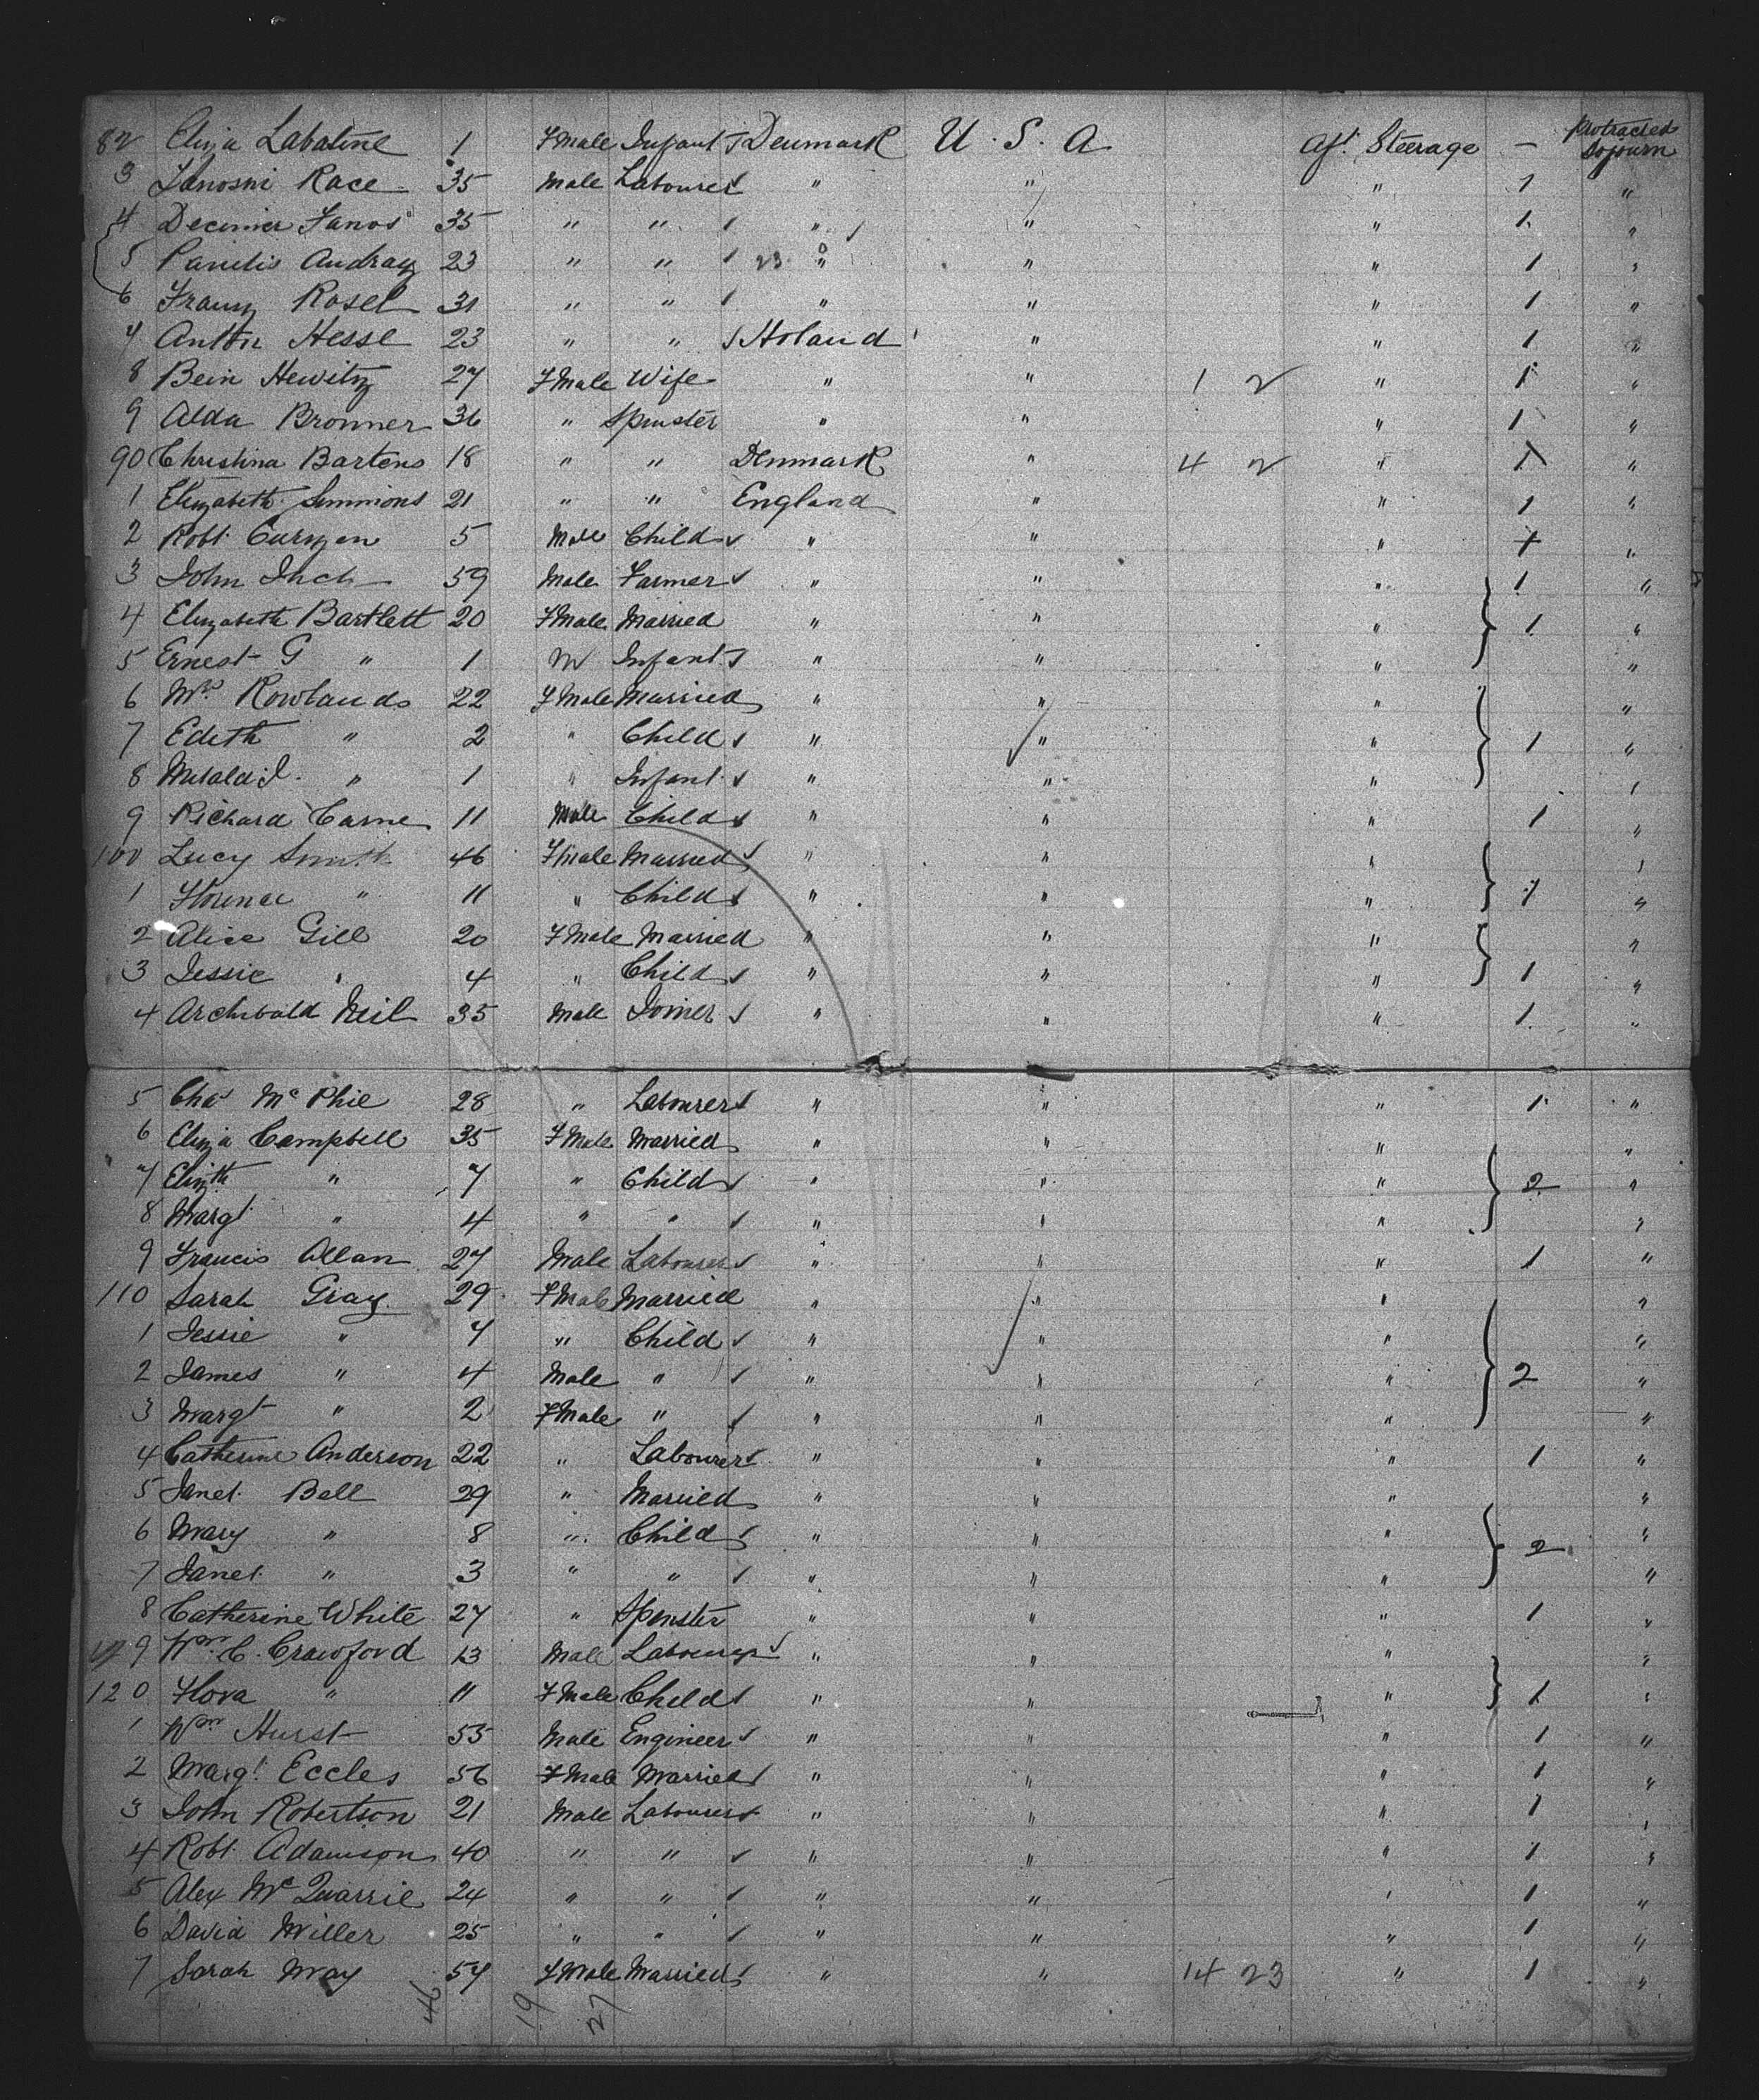 82 Eliza Labatine 1 Fmale Infant Denmark U. S. A Aft Steerage — Protracted Sojourn
3 Janoski Race 35 Male Labourer " " " 1 "
4 Decimer Janos 35 " " " " " 1 "
5 Audray 23 " " 23 " " " 1 "
6 Franz Rosel 31 " " " " " 1 "
7 Anton Hesse 23 " " Holand " " 1 "
8 Bein Hewitz 27 Fmale Wife " " 1 2 " 1 "
9 Alda Bronner 36 " Spinster " " " 1 "
90 Christina Bartens 18 " " Denmark " 4 2 " 1 "
1 Elizabeth Simmions 21 " " England " " 1 "
2 Robt. Curzen 5 Male Child " " " 1 "
3 John Inch 59 Male Farmer " " " 1 "
4 Elizabeth Bartlett 20 Fmale Married " " " 1 "
5 Ernest G " 1 M Infant " " " "
6 Mrs Rowlands 22 Fmale Married " " " "
7 Edith " 2 " Child " " " 1 "
8 " 1 " Infant " " " "
9 Richard Carne 11 Male Child " " " 1 "
100 Lucy Smith 46 Fmale Married " " " "
1 Florence " 11 " Child " " " 1 "
2 Alice Gill 20 Fmale Married " " " "
3 Jessie " 4 " Child " " " 1 "
4 Archibald Neil 35 Male Joiner " " " 1 "
5 Chas McPhie 28 " Labourer " " " 1 "
6 Eliza Campbell 35 Fmale Married " " " "
7 Elizth " 7 " Child " " " 2 "
8 Margt " 4 " " " " " "
9 Francis Allan 27 Male Labourer " " " 1 "
110 Sarah Gray 29 Fmale Married " " " "
1 Jessie " 7 " Child " " " "
2 James " 4 Male " " " " 2 "
3 Margt " 2 Fmale " " " " "
4 Catherine Anderson 22 " Labourer " " " 1 "
5 Janet Bell 29 " Married " " " "
6 Mary " 8 " Child " " " 2 "
7 Janet " 3 " " " " " "
8 Catherine White 27 " Spinster " " " 1 "
9 Wm. C. Crawford 13 Male Labourer " " " "
120 Flora " 11 Fmale Child " " " 1 "
1 Wm Hurst 53 Male Engineer " " " 1 "
2 Margt. Eccles 56 Fmale Married " " " 1 "
3 John Robertson 21 Male Labourer " " " 1 "
4 Robt. Adamson 40 " " " " " 1 "
5 Alex McQuarrie 24 " " " " " 1 "
6 David Miller 25 " " " " " 1 "
7 Sarah May 57 Fmale Married " " 14 23 " 1 "
46 19 27